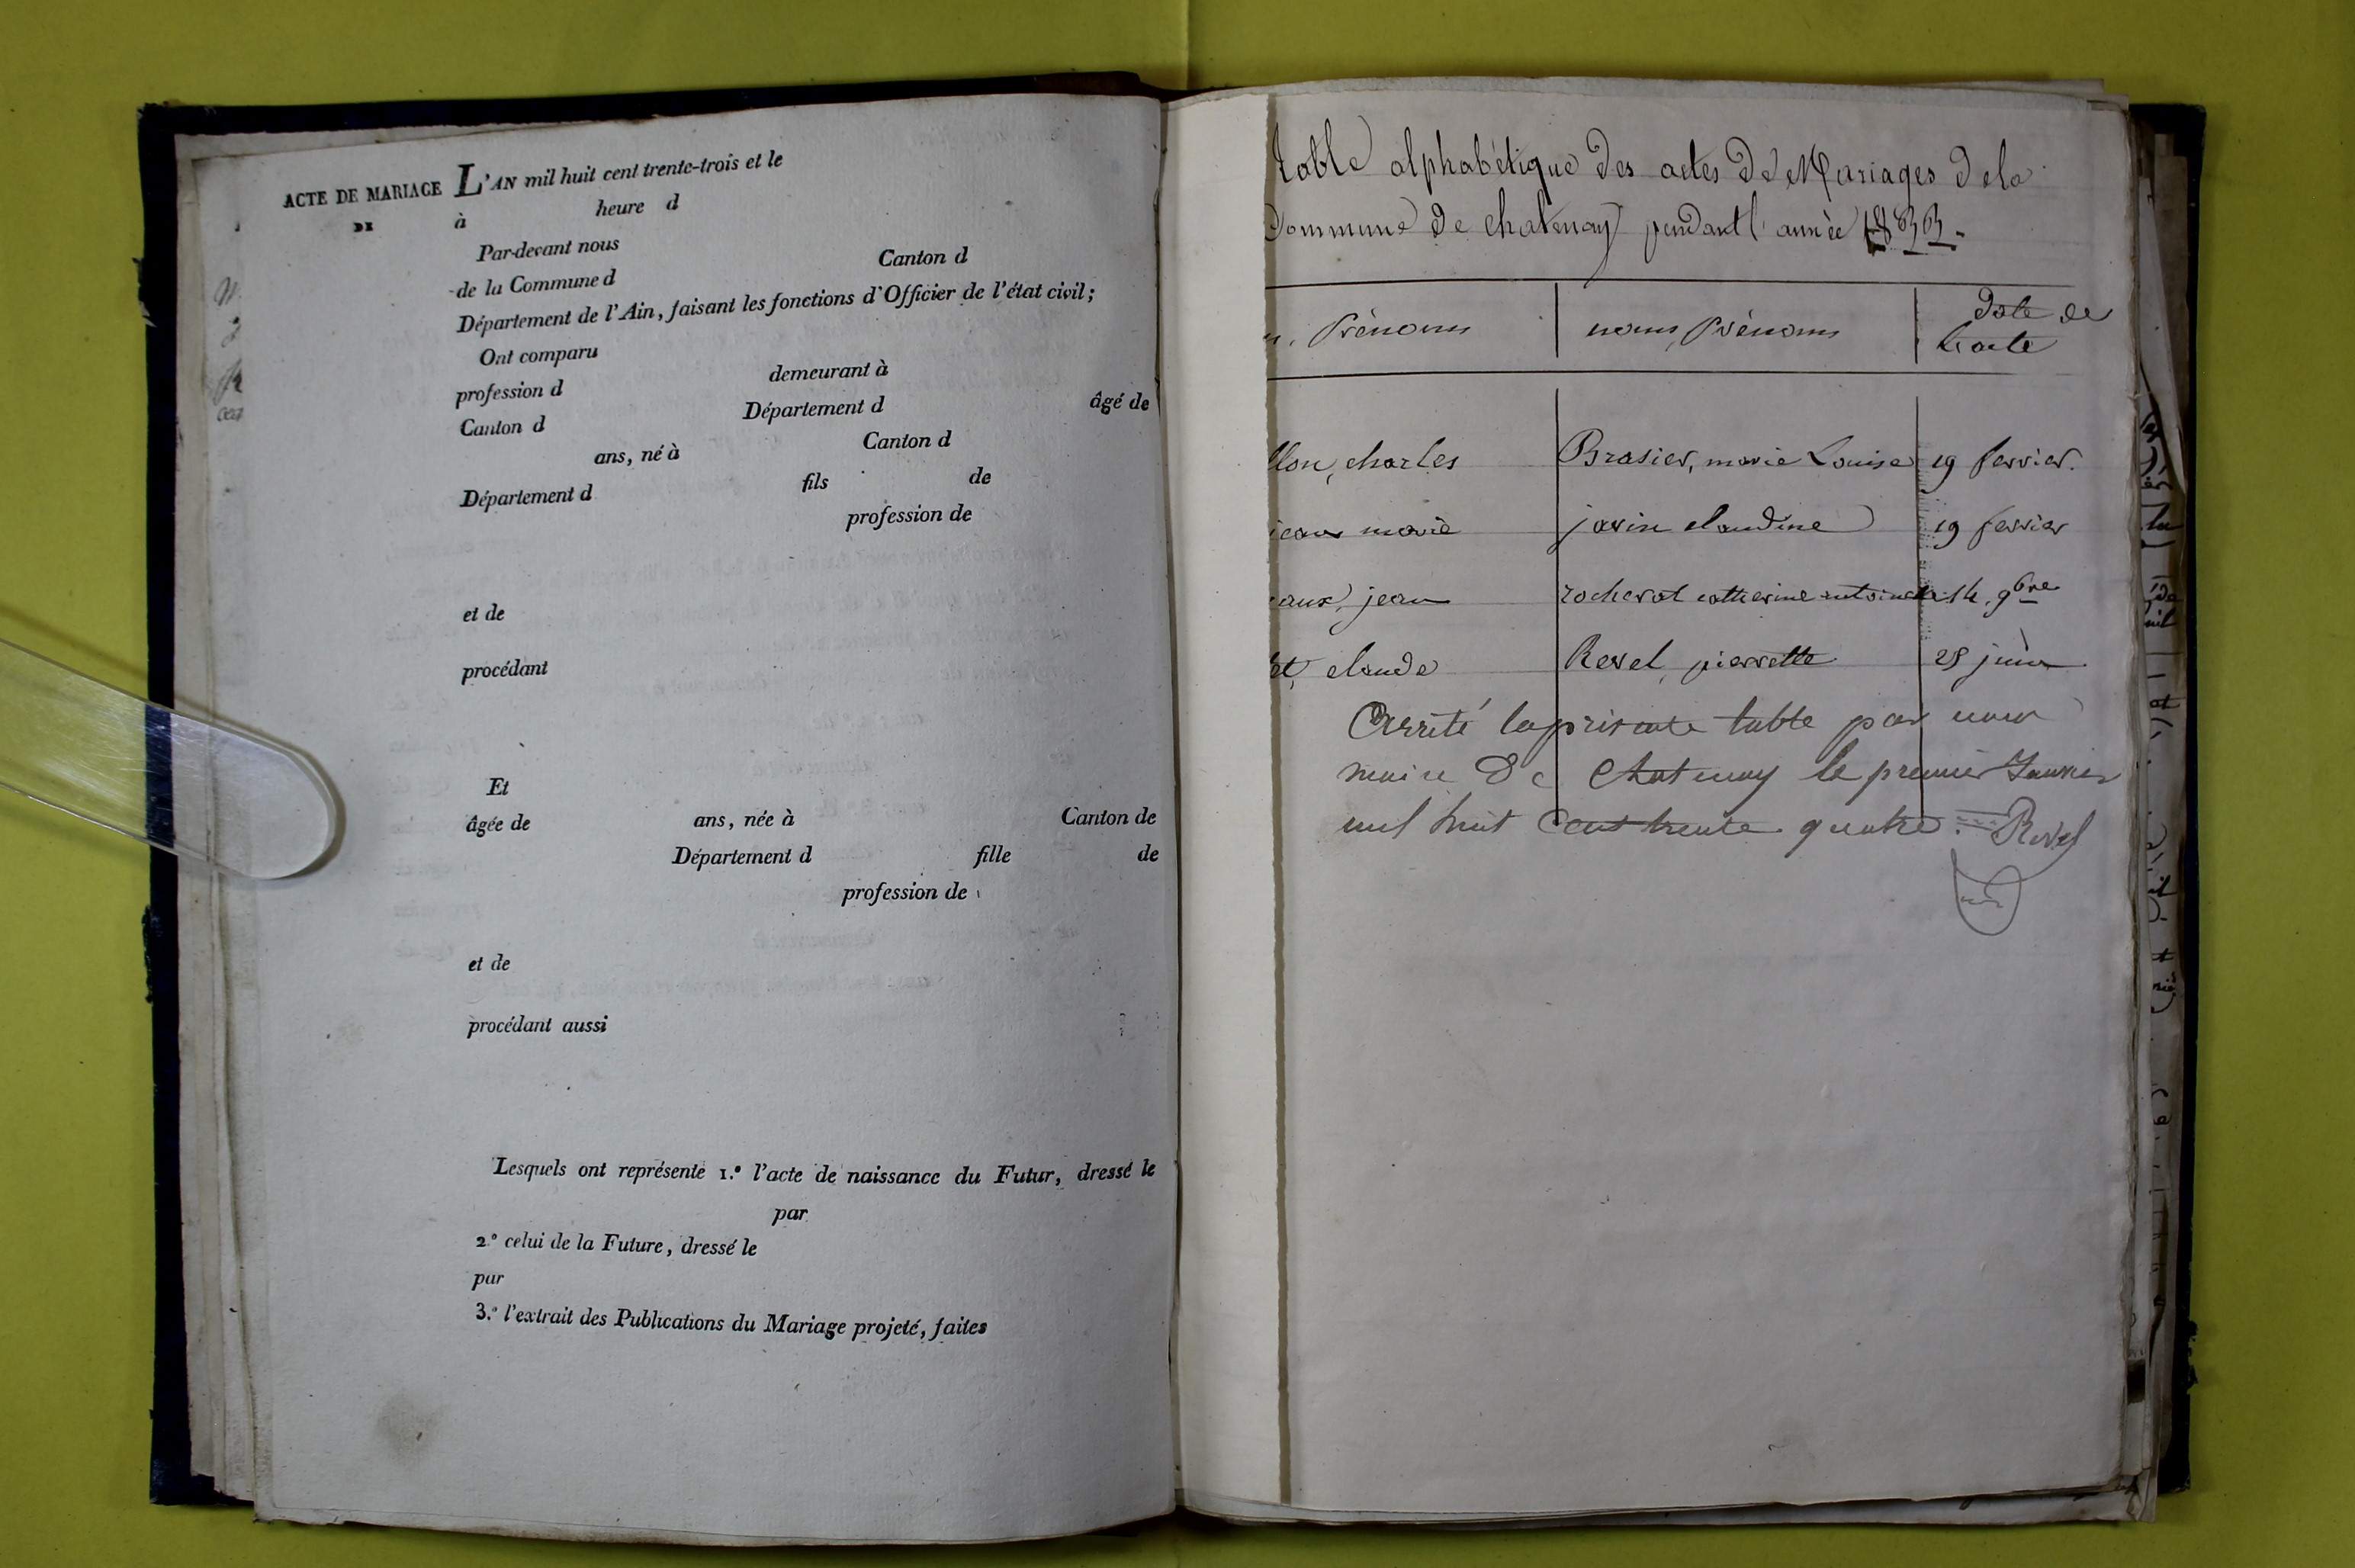 ACTE DE MARIAGE L'AN mil huit cent trente-trois et le
DE à heure d
Par-devant nous
de la Commune d Canton d
Département de l'Ain, faisant les fonctions d'Officier de l'état civil;
Ont comparu
profession d demeurant à
Canton d Département d âgé de
ans, né à Canton d
Département d fils de
profession de
et de
procédant
Et
âgée de ans, née à Canton de
Département d fille de
profession de
et de
procédant aussi
Lesquels ont représenté 1.º l'acte de naissance du Futur, dressé le
par
2.º celui de la Future, dressé le
par
3.º l'extrait des Publications du Mariage projeté, faites
table alphabétique des actes de Mariages de la
Commune de chatenay pendant l'année 1833.
Prénoms noms, Prénoms date de
l'acte
llon, charles Brasier, marie Louise 19 fevrier.
jean marie javin claudine 19 fevrier
aux, jean rocherat catherine antoinette 14. 9bre
et, claude Revel, pierrette 25 juin
Arrêté la présente table par nous
maire de Chatenay le premier Janvier
mil huit cent trente quatre. Revel